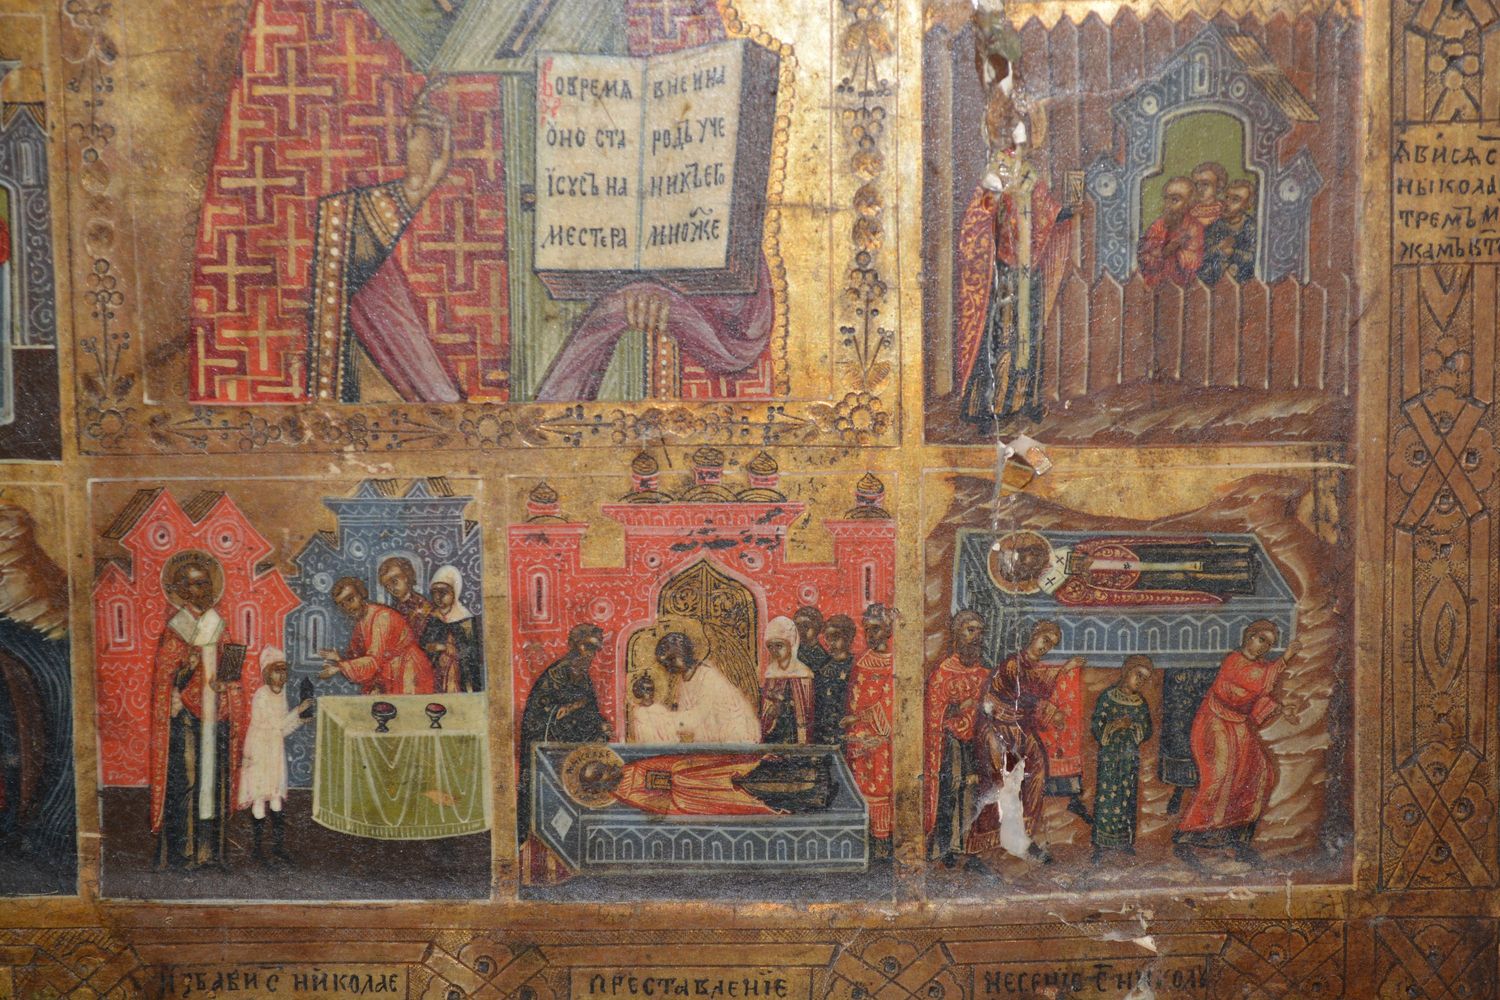 Вовремѧ
оно ста
їсусъ на
месте ра
внеи на
родъ уче
никъ его
множе
Ѧвисѧ с҃
никола
тремъ м
жамъ
избави с҃ николае
преставленіе
несеніе с҃ николы